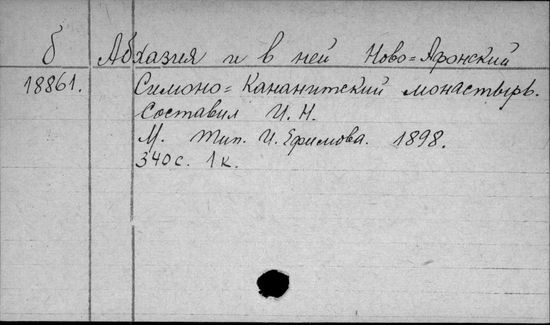 б Абхазия и в ней Ново=Афонский
18861. Симоно=Кананитский монастырь.
Составил И. Н.
М. Тип. И. Ефимова. 1898.
340 с. 1 к.